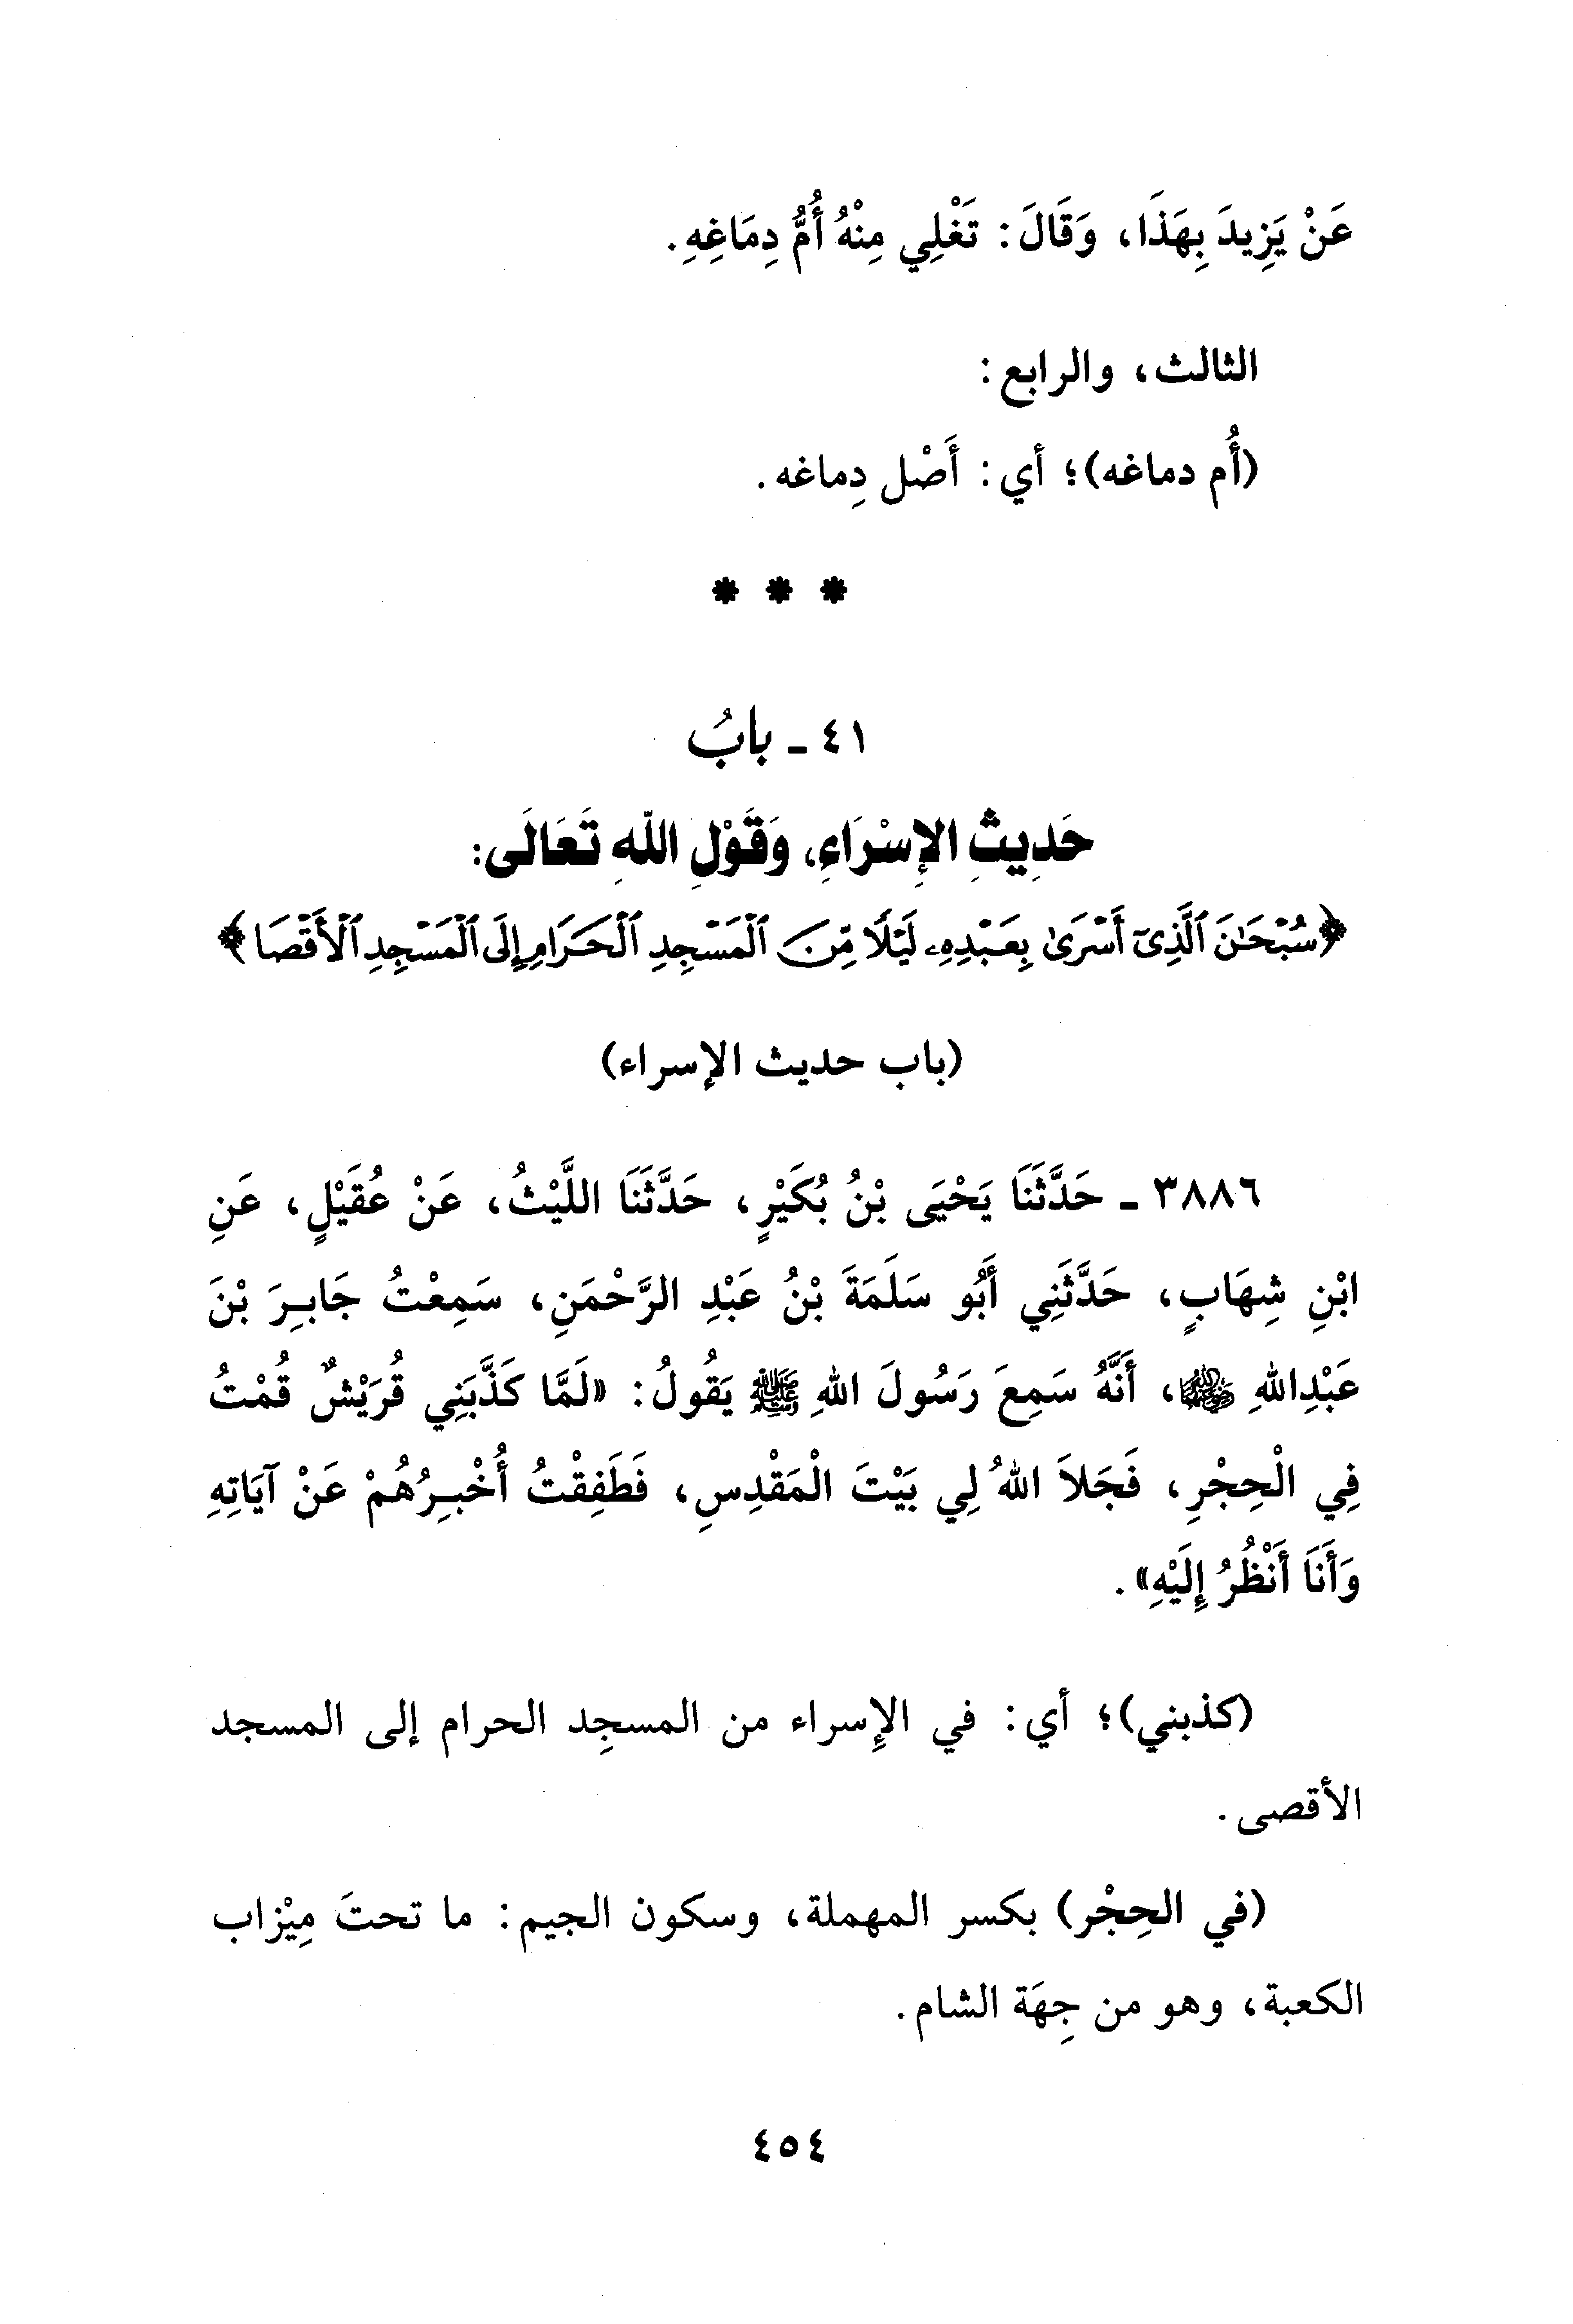 عَنْ يَزِيدَ بِهَذَا، وَقَالَ: تَغْلِي مِنْهُ أُمُّ دِمَاغِهِ.
الثالث، والرابع:
(أُم دماغه)؛ أي: أَصْل دِماغه.
* * *
٤١ - بابُ
حَدِيثِ الإِسْرَاءِ، وَقَوْلِ اللهِ تَعَالَى:
﴿سُبْحَٰنَ ٱلَّذِىٓ أَسْرَىٰ بِعَبْدِهِۦ لَيْلًا مِّنَ ٱلْمَسْجِدِ ٱلْحَرَامِ إِلَى ٱلْمَسْجِدِ ٱلْأَقْصَا﴾
(باب حديث الإسراء)
٣٨٨٦ - حَدَّثَنَا يَحْيَى بْنُ بُكَيْرٍ، حَدَّثَنَا اللَّيْثُ، عَنْ عُقَيْلٍ، عَنِ
ابْنِ شِهَابٍ، حَدَّثَنِي أَبُو سَلَمَةَ بْنُ عَبْدِ الرَّحْمَنِ، سَمِعْتُ جَابِرَ بْنَ
عَبْدِاللهِ ﵄، أَنَّهُ سَمِعَ رَسُولَ اللهِ ﷺ يَقُولُ: «لَمَّا كَذَّبَنِي قُرَيْشٌ قُمْتُ
فِي الْحِجْرِ، فَجَلاَ اللهُ لِي بَيْتَ الْمَقْدِسِ، فَطَفِقْتُ أُخْبِرُهُمْ عَنْ آيَاتِهِ
وَأَنَا أَنْظُرُ إِلَيْهِ».
(كذبني)؛ أي: في الإِسراء من المسجِد الحرام إلى المسجد
الأقصى.
(في الحِجْر) بكسر المهملة، وسكون الجيم: ما تحتَ مِيْزاب
الكعبة، وهو من جِهَة الشام.
٤٥٤